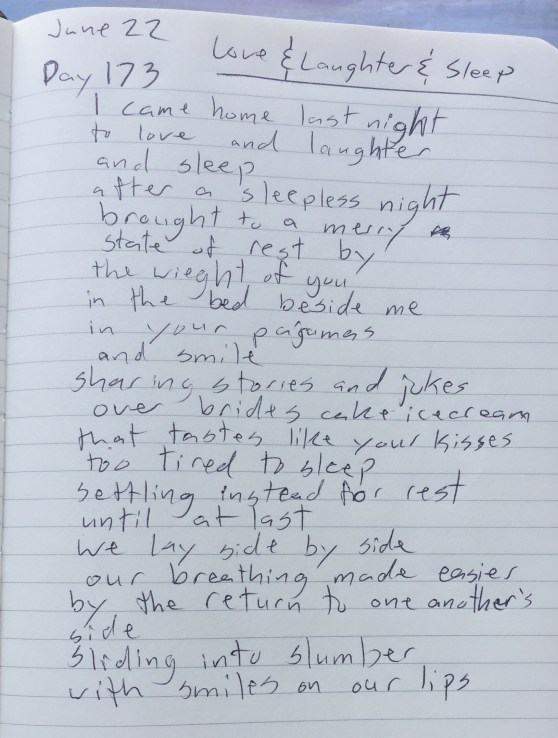 June 22
Love & Laughter & Sleep
Day 173
I came home last night
to love and laughter
and sleep
after a sleepless night
brought to a merry
state of rest by
the wieght of you
in the bed beside me
in your pajumas
and smile
sharing stories and jokes
over brides cake icecream
that tastes like your kisses
too tired to sleep
settling instead for rest
until at last
we lay side by side
our breathing made easier
by the return to one another's
side
sliding into slumber
with smiles on our lips